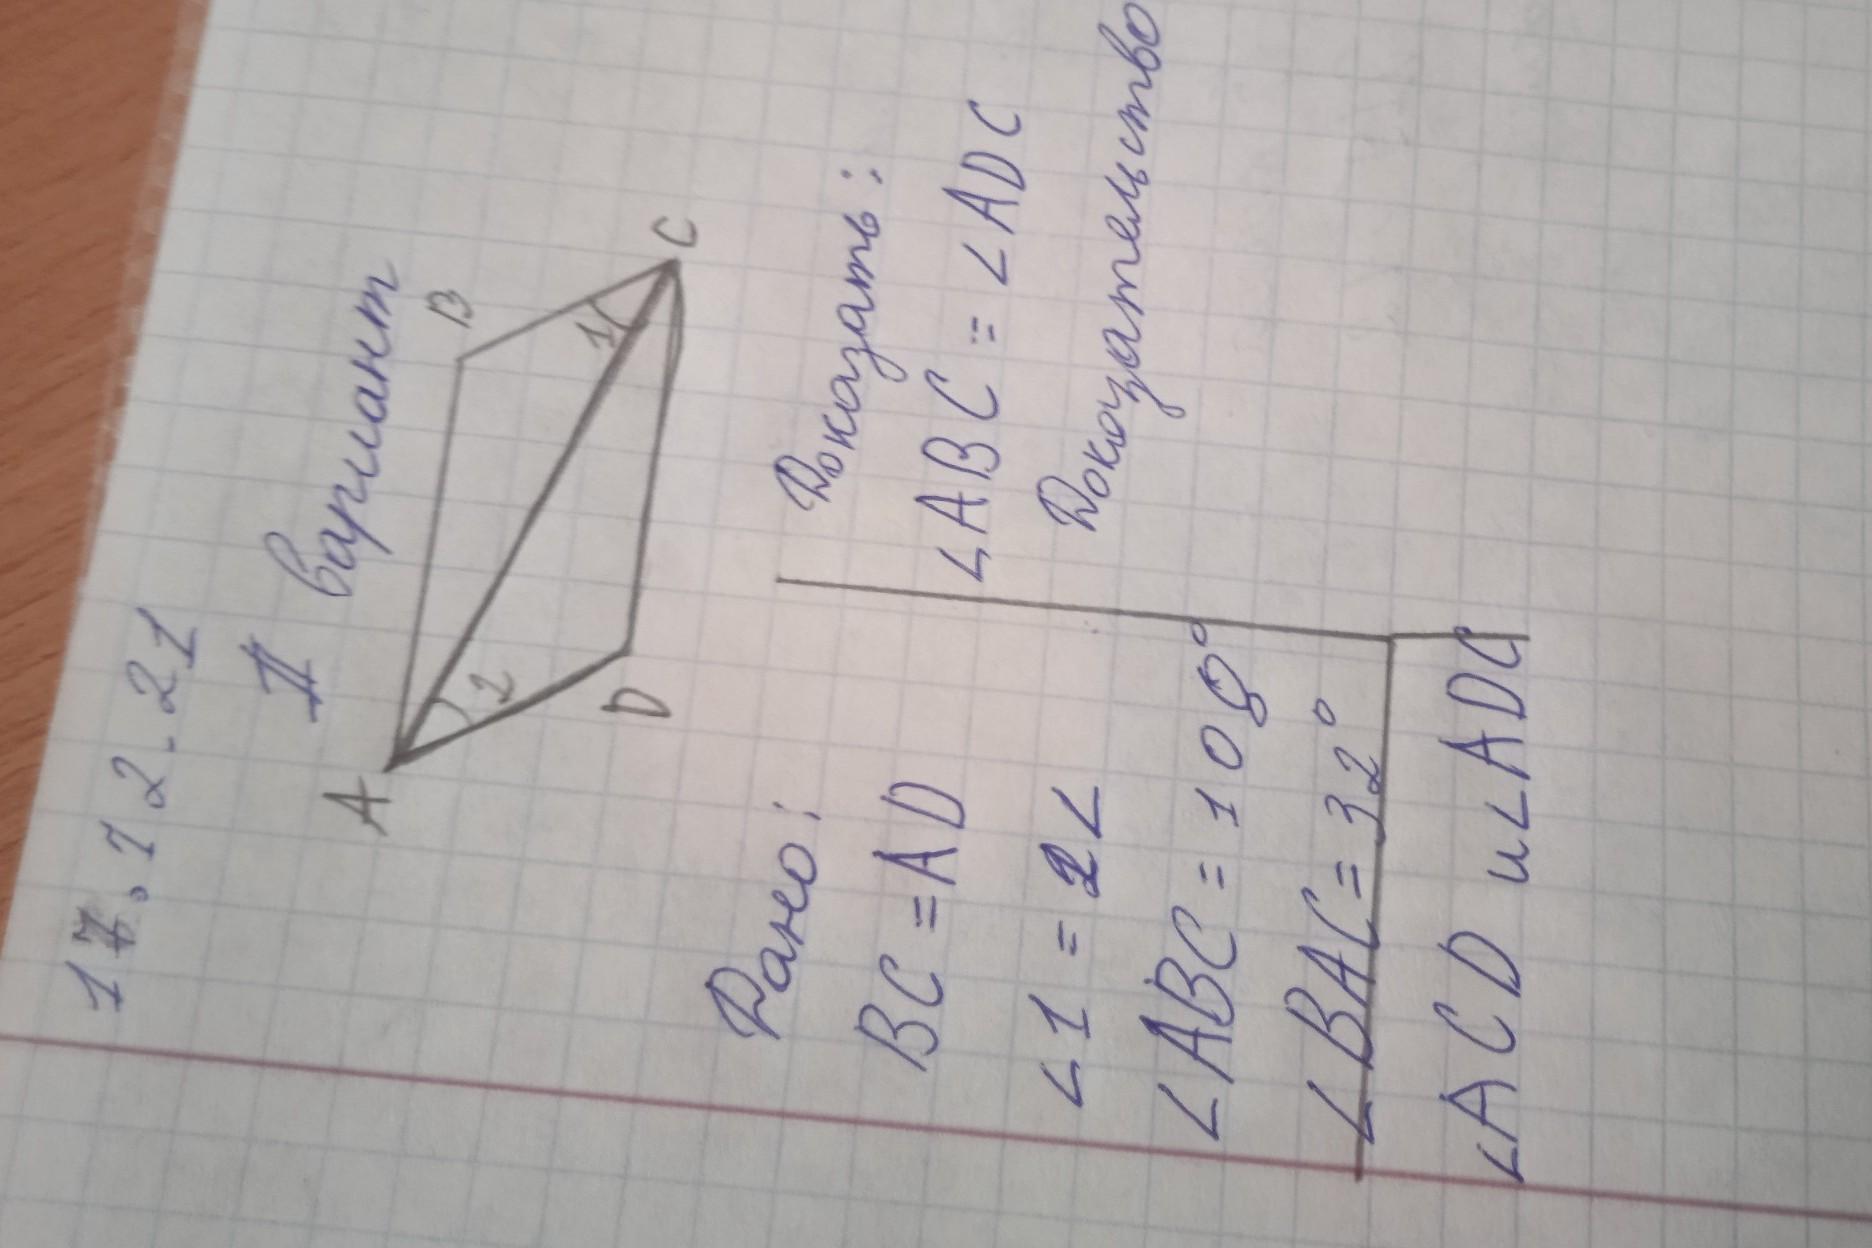 17.12.21
II вариант
A
B
C
D
1
2
Дано:
BC = AD
∠1 = 2∠
∠ABC = 108°
∠BAC = 32°
∠ACD и ∠ADC
Доказать:
∠ABC = ∠ADC
Доказательство